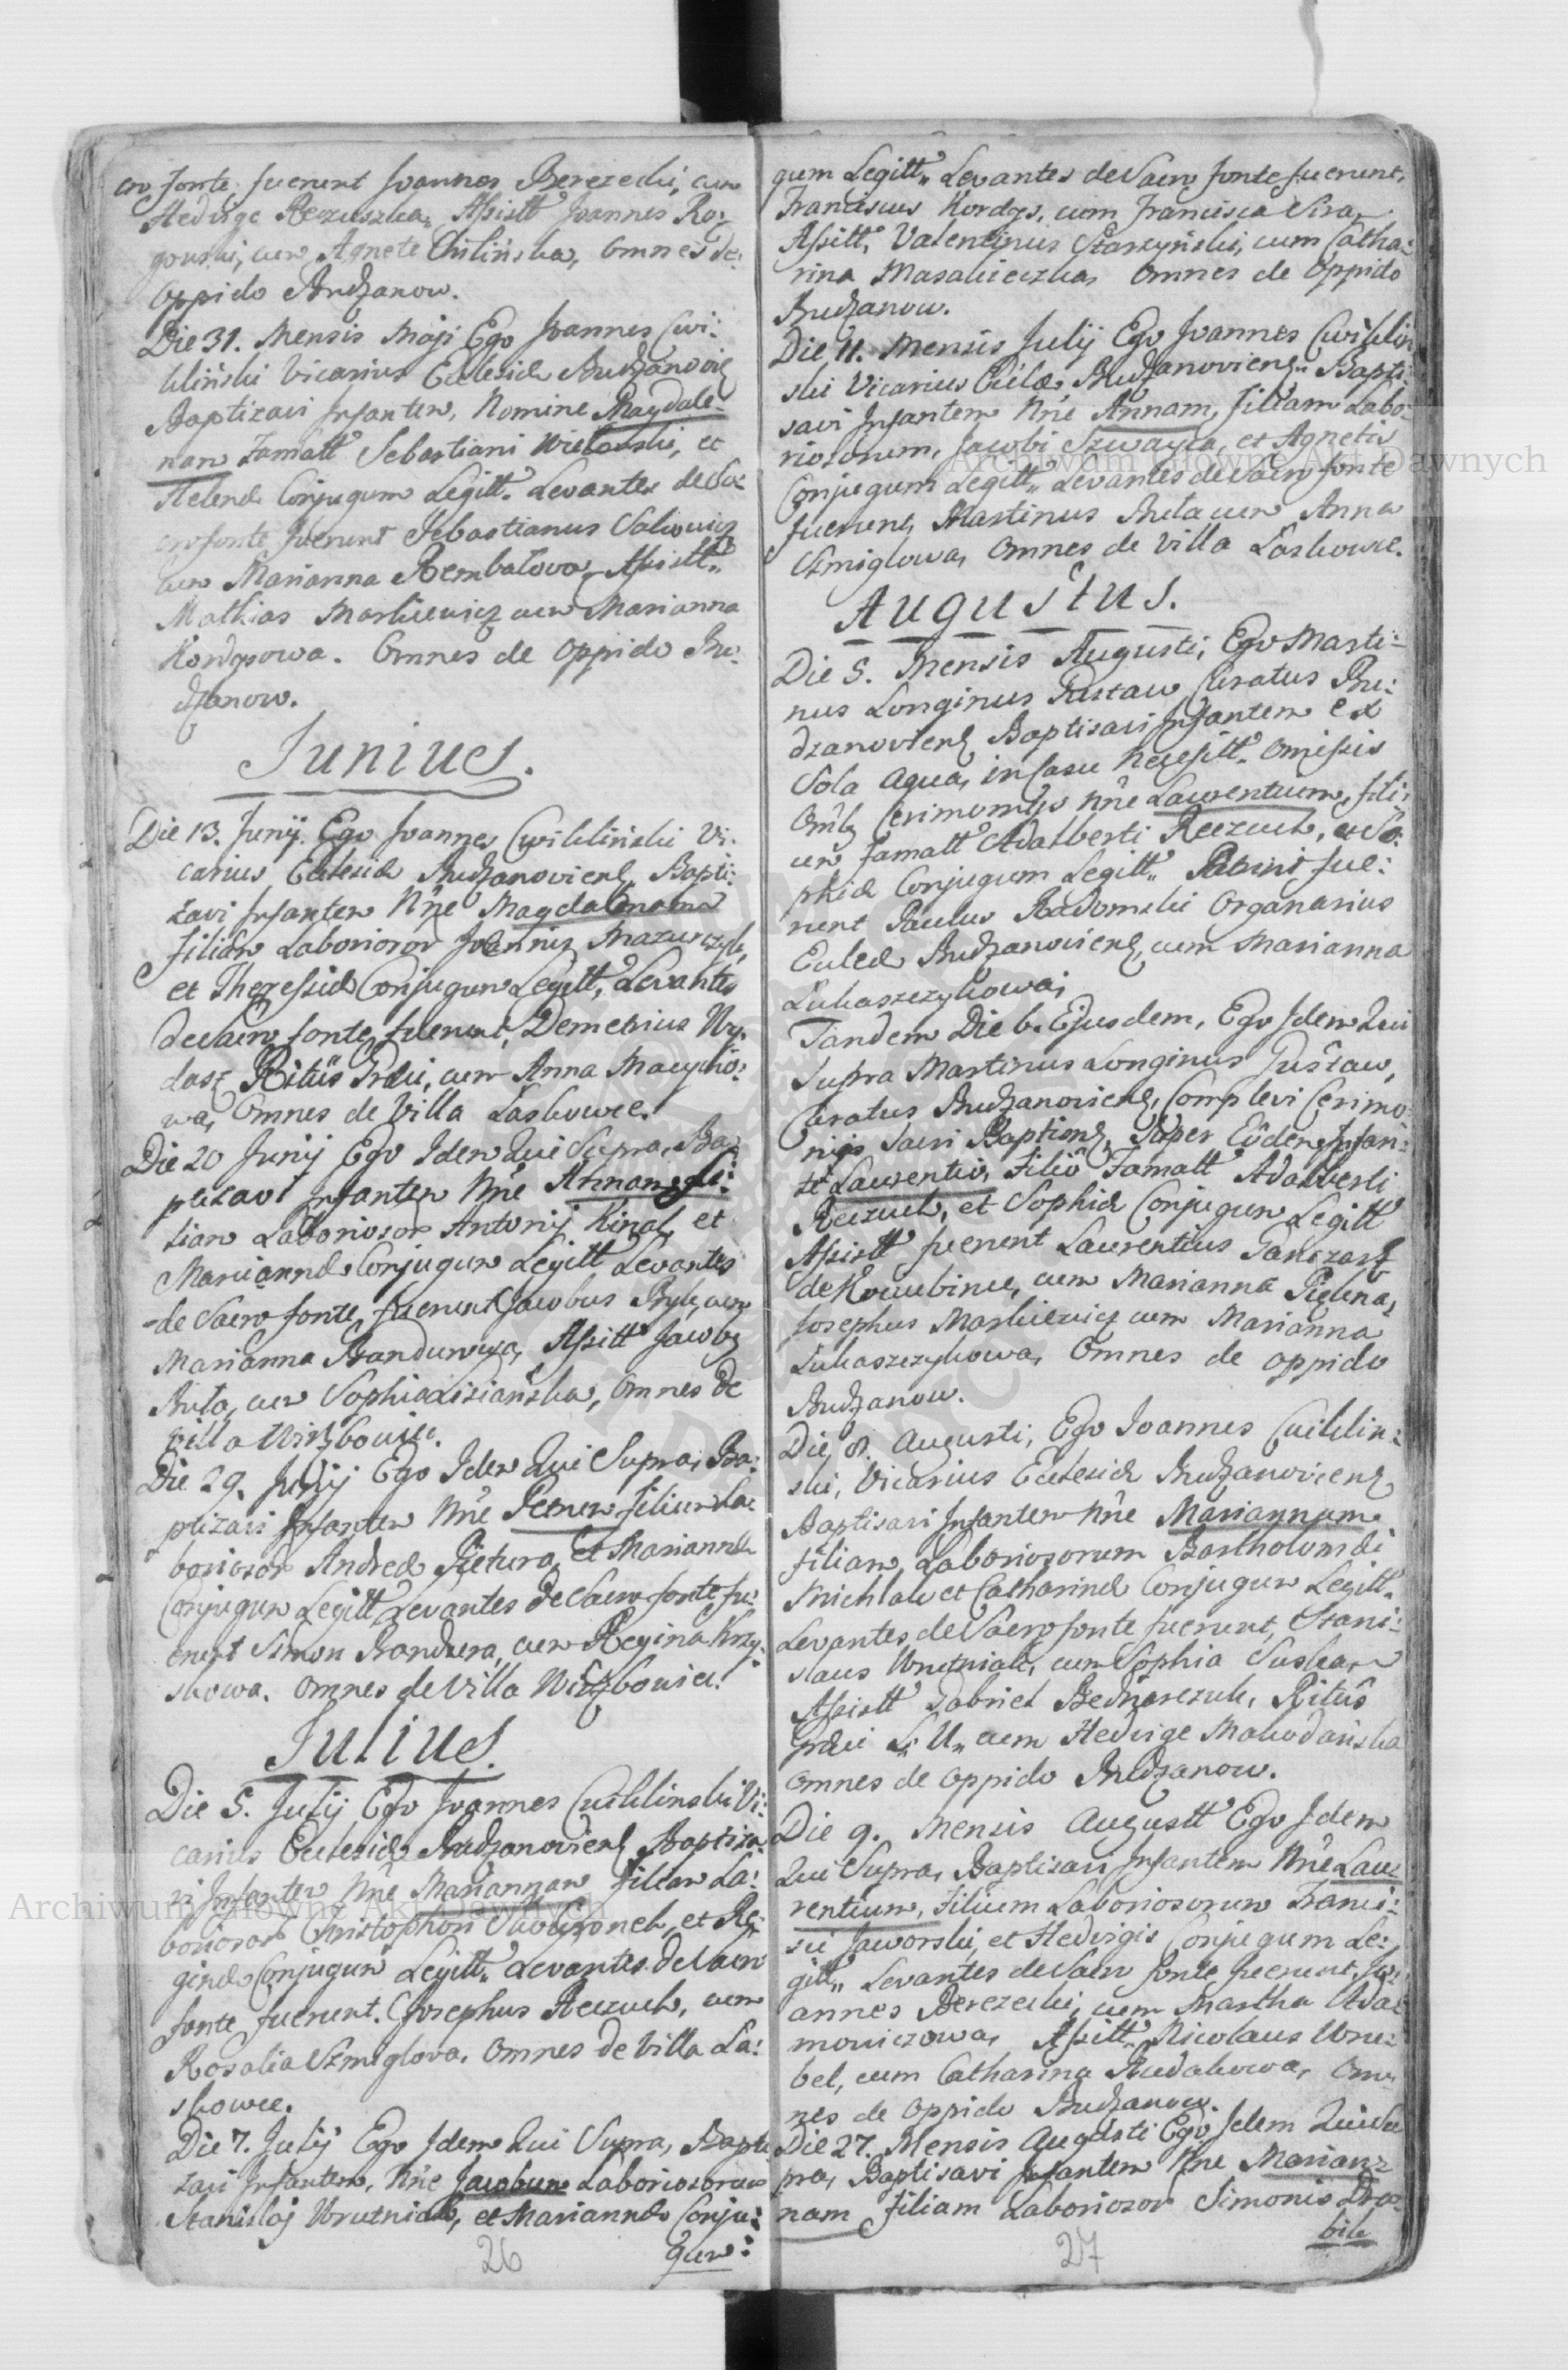 cro fonte fuerunt Joannes Berezecki, cum
Hedvige Reczuszka, Assistt Joannes Ro:
gouski, cum Agnete Chilińska, Omnes de
Oppido Budzanow.
Die 31. Mensis Maji Ego Joannes Cwi:
kliński Vicarius Ecclesiæ Budzanovien
Baptizavi Infantem, Nomine Magdale:
nam Famatt Sebastiani Wielouski, et
Helenæ Conjugum Legitt. Levantes de Sa:
cro fonte fuerunt Sebastianus Saliowicz
cum Marianna Rembatowa, Assistt"
Mathias Markiewicz cum Marianna
Kordysowa. Omnes de Oppido Bu:
dzanow.
Junius.
Die 13. Junij Ego Joannes Cwikliński Vi:
carius Ecclesiæ Budzanovienß Bapti:
zavi Infantem Nñe Magdalenam
filiam Laboriosor Joannis Mazurczyk,
et Theressiæ Conjugum Legitt, Levantes
de Sacro fonte fuerunt, Demetrius Wy:
dasz Ritûs Græci, cum Anna Macycho:
wa, Omnes de Villa Laskowce.
Die 20 Junij Ego Idem Qui Supra, Ba:
ptizavi Infantem Nñe Annam fi:
liam Laboriosor Antonij Kinal, et
Mariannæ Conjugum Legitt Levantes
de Sacro fonte, fuerunt Jacobus Byk, cum
Marianna Bandurowa, Assitt Jacob9
Buta, cum Sophia Lisiańska, Omnes de
Villa Wirzbowiec.
Die 29. Junij Ego Idem Qui Supra, Ba:
ptizavi Infantem Nñe Petrum filium La:
boriosor Andreæ Pietura, et Mariannæ
Conjugum Legitt Levantes de Sacro fonte fu:
erunt Simon Bandura, cum Regina Krzy:
skowa. Omnes de Villa Wirzbowiec.
Julius.
Die 5. Julij Ego Joannes Cwikliński Vi:
carius Ecclesiæ Budzanovienß Baptiza:
vi Infantem Nñe Mariannam filiam La:
boriosor Christophori Skowronek, et Re:
ginæ Conjugum Legitt" Levantes de Sacro
fonte fuerunt. Josephus Reczuch, cum
Rosalia Szmiglova. Omnes de Villa La:
skowce.
Die 7. Julij Ego Idem Qui Supra, Bapti:
zavi Infantem, Nñe Jacobum Laboriosorum
Stanislaj Wrutniak, et Mariannæ Conju:
gum:
26
gum Legitt" Levantes de Sacro fonte fuerunt,
Franciscus Kordys, cum Francisca Sira,
Assitt, Valentinus Starzyński, cum Catha:
rina Masakieczka, Omnes de Oppido
Budzanow.
Die 11. Mensis Julij Ego Joannes Cwiklin
ski Vicarius Eccl̃æ, Budzanovienß" Bapti:
savi Infantem Nñe Annam, filiam Labo:
riosorum, Jacobi Szwayca, et Agnetis
Conjugum Legitt" Levantes de Sacro fonte
fuerunt, Martinus Buta cum Anna
Szmiglowa, Omnes de Villa Laskowce.
Augustus.
Die 5. Mensis Augusti, Ego Marti:
nus Longinus Pustaw, Curatus Bu:
dzanovienß Baptisavi Infantem ex
Sola aqua, in Casu Necessitt" omissis
Omĩb9 Cerimonijs Nñe Laurentium, fili:
um Famatt Adalberti Reczuch, et So:
phiæ Conjugum Legitt" Patrini fue:
runt Paulus Radomski Organarius
Ecclæ Budzanovienß, cum Marianna
Lukaszczykowa,
Tandem Die 6. Ejusdem, Ego Idem Qui
Supra Martinus Longinus Pustaw,
Curatus Budzanovienß, Complevi Cerimo:
nijs Sacri Baptismß, Super Eõdem Infan:
te Laurentio, Filiõ Famatt Adalberti
Reczuch, et Sophiæ Conjugum Legitt
Assistt fuerunt Laurentius Ganczarz
de Kowubince, cum Marianna Pielena,
Josephus Markiewicz cum Marianna
Lukaszczykowa, Omnes de oppido
Budzanow.
Die 8. Augusti, Ego Joannes Cwiklin:
ski, Vicarius Ecclesiæ Budzanovienß
Baptisavi Infantem Nñe Mariannam
filiam Laboriosorum Bartholomæi
Michlak et Catharinæ Conjugum Legitt"
Levantes, de Sacro fonte fuerunt, Stani:
slaus Wrutniak, cum Sophia Suska,
Assistt Gabriel Bednarczuk, Ritûs
Græci S: U" cum Hedvige Mokodańska
Omnes de Oppido Budzanow.
Die 9. Mensis Augustt Ego Idem
Qui Supra, Baptisavi Infantem Nñe Lau:
rentium, Filium Laboriosorum Franci:
sci Jaworski, et Hedvigis Conjugum Le:
gitt" Levantes de Sacro fonte fuerunt, Jo:
annes Berezecki, cum Martha Ada:
mowiczowa, Assitt" Nicolaus Wru:
bel, cum Catharina Rudakowa, Om:
nes de Oppido Budzanow.
Die 27. Mensis Augusti Ego Idem Qui Su
pra, Baptisavi Infantem Nñe Marian:
nam Filiam Laboriosor Simonis Dro:
bik
27
Archiwum Główne Akt Dawnych
Archiwum Główne Akt Dawnych